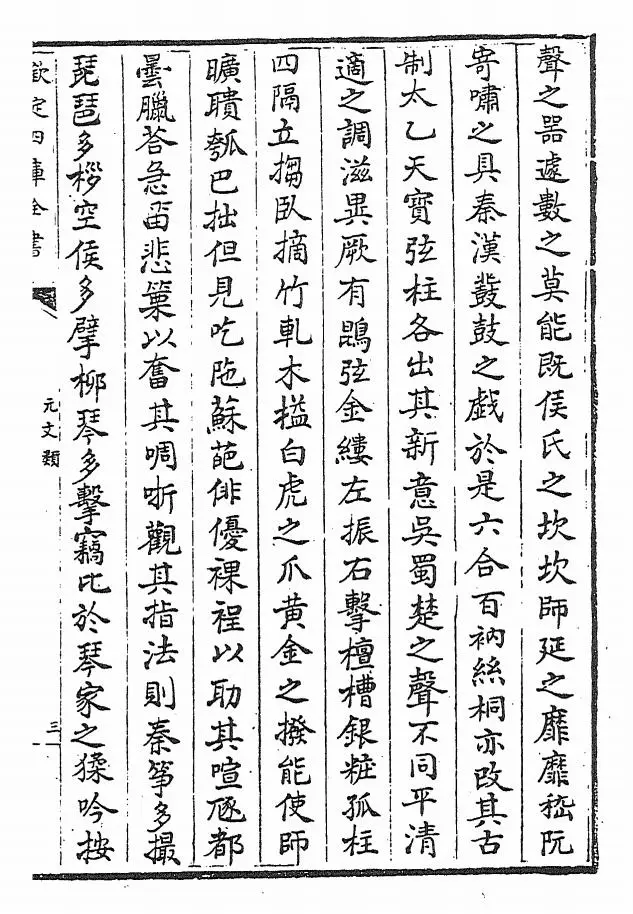 聲之器遽數之莫能既侯氏之坎坎師延之靡靡嵇阮
寄嘯之具秦漢鼗鼓之戲於是六合百衲絲桐亦改其古
制太乙天寳弦柱各出其新意吳蜀楚之聲不同平清
適之調滋異厥有鵾弦金縷左振右擊檀槽銀粧孤柱
四隔立搊臥摘竹軋木搤白虎之爪黃金之撥能使師
曠聵瓠巴拙但見吃陁蘇葩俳優裸裎以助其喧豗都
曇臘荅急畱悲篥以奮其啁哳觀其指法則秦箏多撮
琵琶多㧜空侯多擘栁琴多擊竊比於琴家之猱吟按
欽定四庫全書
元文類
三